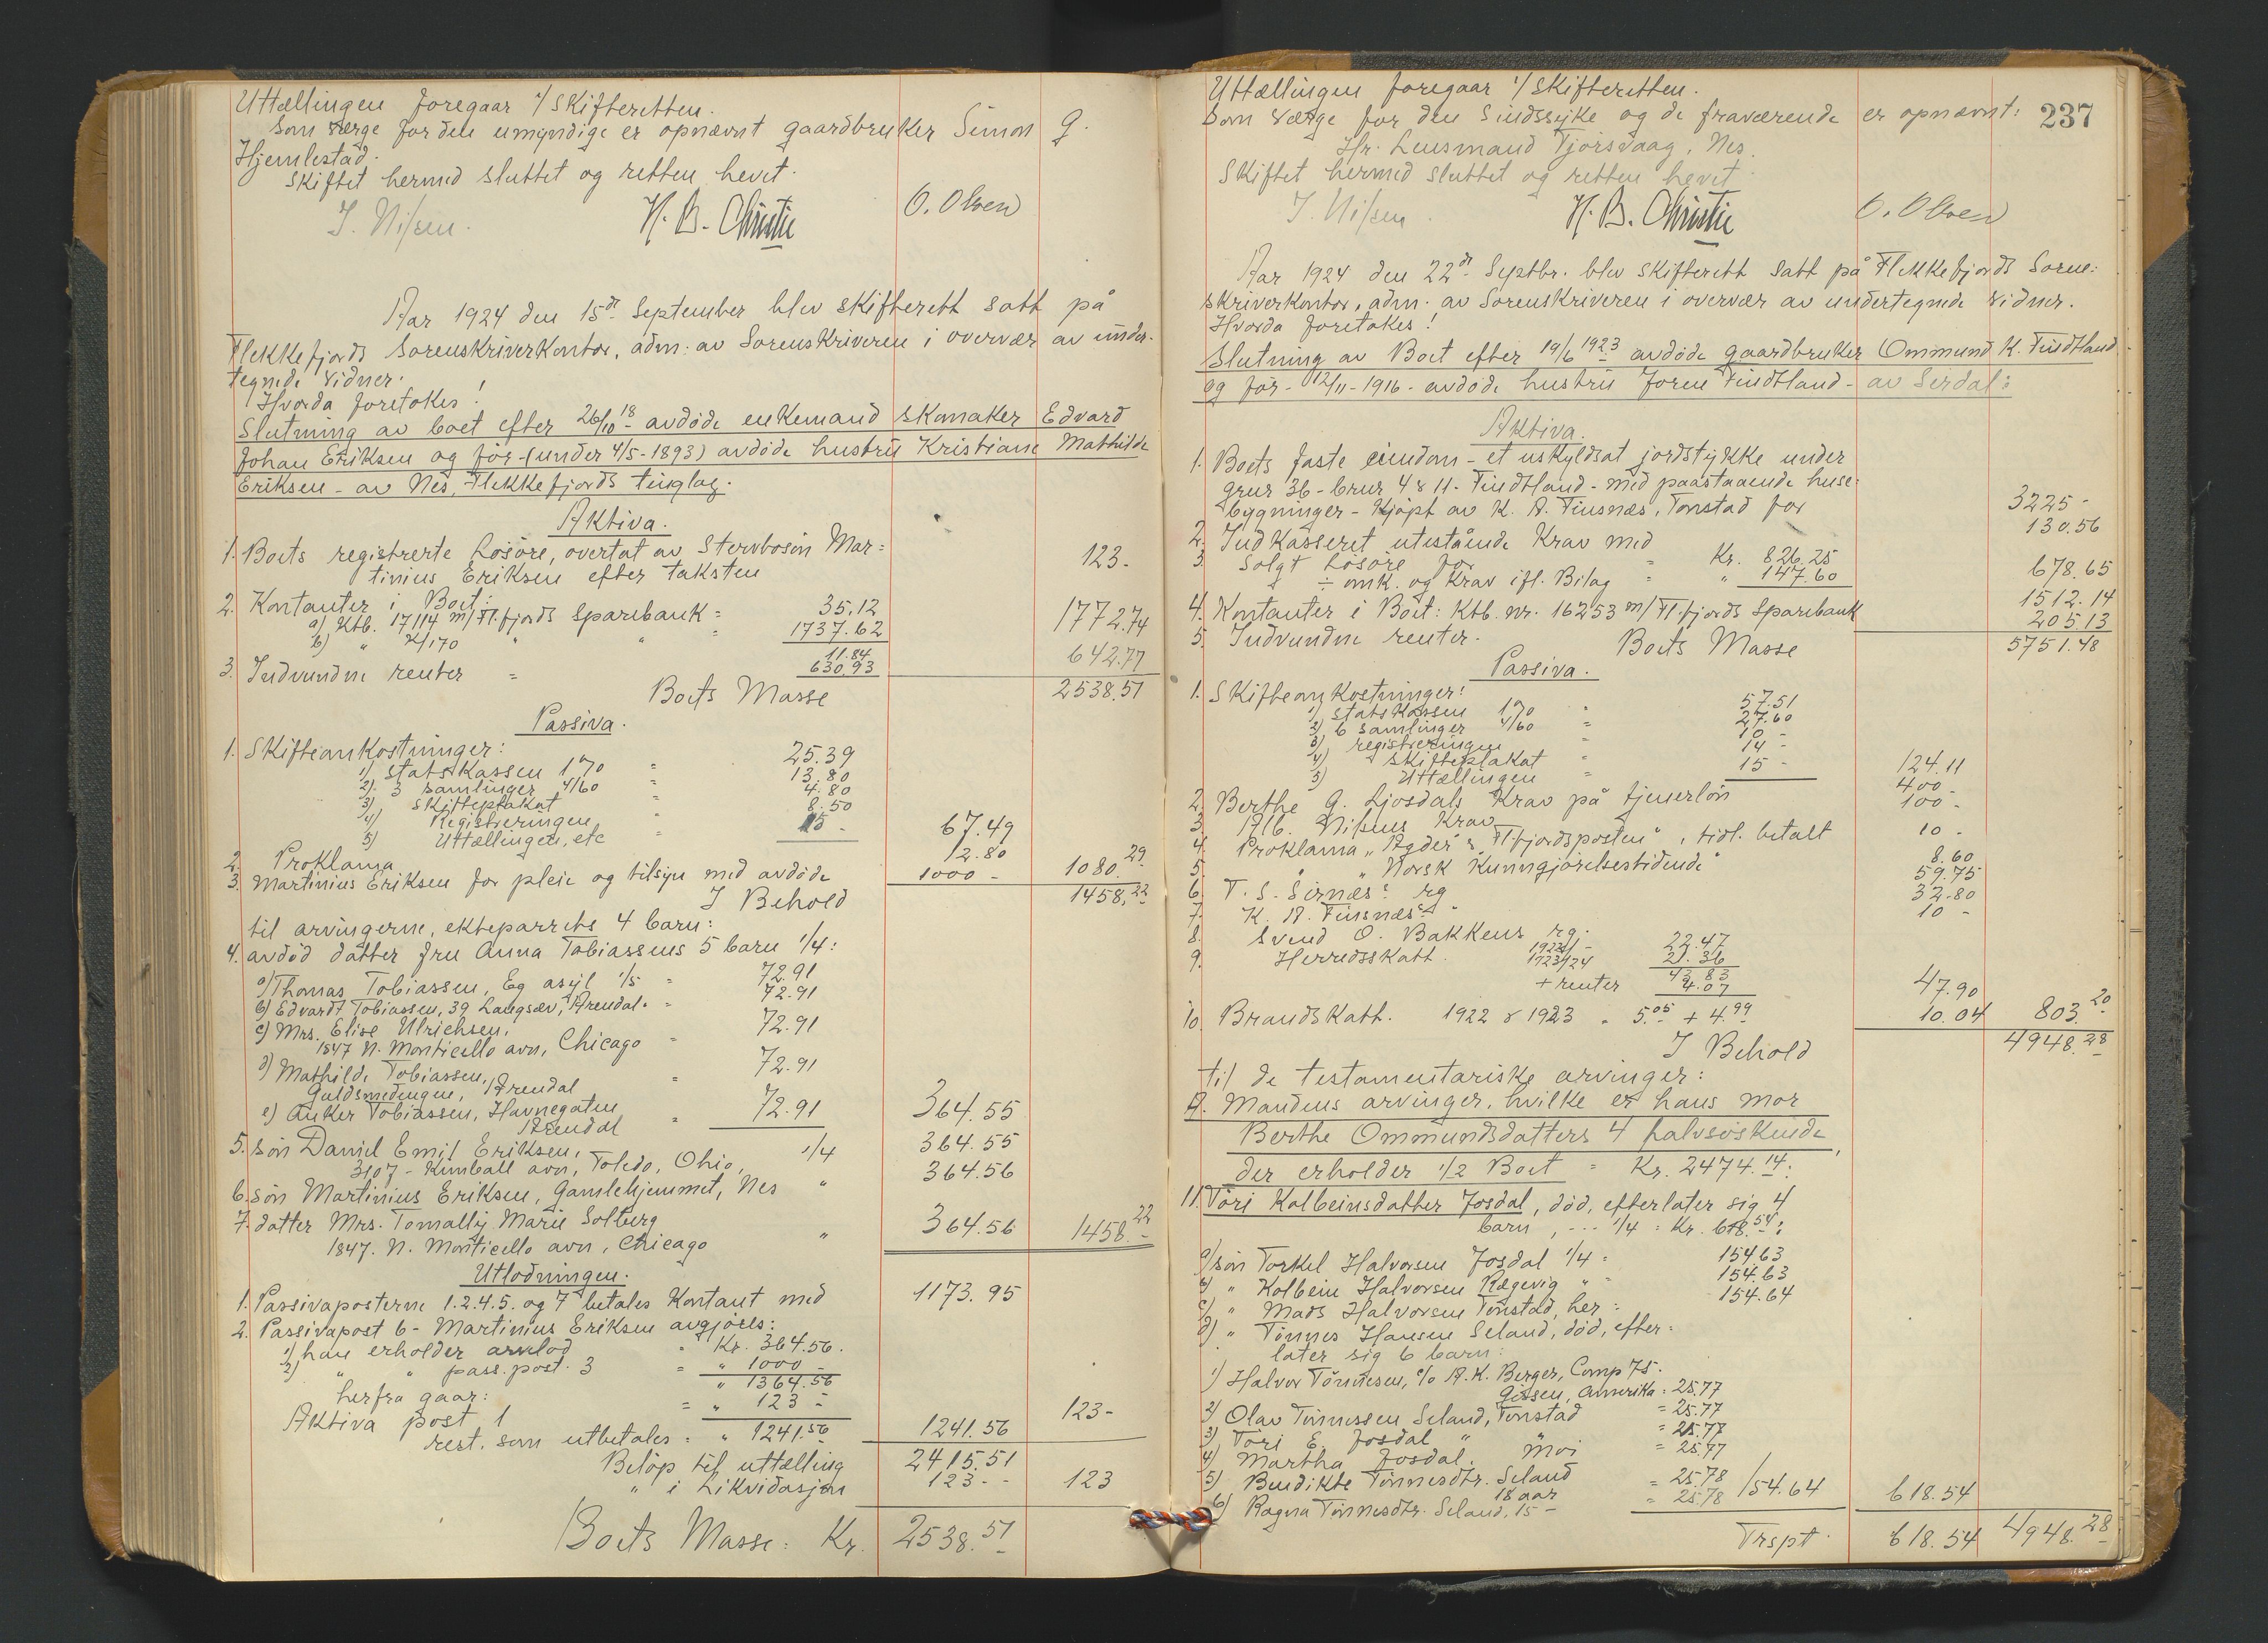 Uttællingen foregaar i/ Skifteretten.
Som værge for den umyndige er opnævnt gaardbruker Simon G.
Hjemlestad.
Skiftet hermed sluttet og retten hevet.
J. Nilsen. H. B. Christie O. Olsen
Aar 1924 den 15de September blev skifterett satt på
Flekkefjords Sorenskriverkontor, adm: av Sorenskriveren i overvær av under-
tegnede vidner.
Hvorda foretokes!
Slutning av boet efter 26/10 18 avdøde enkemand skomaker Edvard
Johan Eriksen og før-(under 4/5-1893) avdøde hustru Kristiane Mathilde
Eriksen - av Nes, Flekkefjords tinglag.
Aktiva.
1. Boets registrerte Løsøre, overtat av Stervbosøn Mar=
tinius Eriksen efter taksten 123.-
2. Kontanter i Boet:
a) Ktb. 17114 m/Fl.fjords Sparebank = 35.12
b) " " " = 1737.62 1772.74
3. Indvundne renter = 11.84
630.93 642.77
Boets Masse 2538.51
Passiva.
1. Skifteomkostninger:
1) Statskassen 1% = 25.39
2) 3 samlinger 4/60 = 13.80
3) Skifteplakat = 4.80
4) Registreringen " 8.50
5) Uttællingen, etc = 15 - 67.49
2. Proklama 12.80
3. Martinius Eriksen for pleie og tilsyn med avdøde 1000 - 1080.29
I Behold 1458.22
til arvingerne, ekteparrets 4 barn:
4. avdød datter fru Anna Tobiassens 5 barn 1/4:
a) Thomas Tobiassen, Eg asyl 1/5 = 72.91
b) Edvardt Tobiassen, 39 Langsæv, Arendal. = 72.91
c) Mrs. Elise Ulrichsen,
1847 N. Monticello avn, Chicago = 72.91
d) Mathilde Tobiassen,
Guldsmedengen, Arendal = 72.91
e) Anker Tobiassen, Havnegaten
Arendal = 72.91 364.55
5. søn Daniel Emil Eriksen,
3107 - Kimball avn, Toledo, Ohio, 1/4 364.55
6. søn Martinius Eriksen, Gamlehjemmet, Nes " 364.56
7. datter Mrs. Tomally Marie Solberg
1847. N. Monticello avn, Chicago " 364.56 1458.22
Utlodningen.
1. Passivaposterne 1.2.4.5. og 7 betales Kontant med 1173.95
2. Passivapost 6 - Martinius Eriksen avgjøres:
1) han erholder arvelod " Kr. 364.56.
2) " " pass. post. 3 = " 1000 -
" 1364.56
herfra gaar:
Aktiva post 1 = " 123 - 123-
rest. som utbetales = " 1241.56 1241.56
Beløp til uttælling 2415.51
" i Likvidasjon 123 - - 123
Boets Masse: Kr. 2538.51
237
Uttællingen foregaar i/ Skifteretten.
Som værge for den sindssyke og de fraværende er opnævnt:
Hr. Lensmand Tjørsvaag, Nes.
Skiftet hermed sluttet og retten hevet.
J. Nilsen. H. B. Christie O. Olsen
Aar 1924 den 22de Septbr. blev skifterett satt på Flekkefjords Soren:
skriverkontor, adm. av Sorenskriveren i overvær av undertegnede vidner.
Hvorda foretokes!
Slutning av Boet efter 19/6 1923 avdøde gaardbruker Ommund K. Findtland
og før - 12/11-1916 - avdøde hustru Joren Findtland - av Serdal:
Aktiva.
1. Boets faste eiendom - et uskyldsat jordstykke under
gnr 36 - bnr 4 & 11 - Findtland - med paastaaende huse-
bygninger - Kjøpt av K. A. Finsnæs, Tonstad for 3225 -
2. Indkasseret utestående Krav med 130.56
3. Solgt Løsøre for = Kr. 826.25
÷ omk. og Krav ifl. Bilag = " 147.60 678.65
4. Kontanter i Boet: Ktb. nr. 16253 m/Fl.fjords Sparebank 1512.14
5. Indvundne renter. 205.13
Boets Masse 5751.48
Passiva.
1. Skifteomkostninger:
1) Statskassen 1% " 57.51
2) 6 samlinger 4/60 = 27.60
3) registreringen = 10 -
4) Skifteplakat " 14 -
5) Uttællingen = 15 - 124.11
2. Berthe G. Ljosdals Krav på tjenerløn 400 -
3. Nilsens Krav 100 -
4. Proklama "Agder" & Fl.fjordsposten", tidl. betalt 10 -
5. " " Norsk Kunngjørelsestidende" 8.60
6. T. S. Sirnæs: rg 59.75
7. K. A. Finsnæs: " 32.80
8. Svend O. Bakkens rg. 10 -
9. Herredsskatt. 22.47
1923/24 21.36
43.83
+ renter 4.07 47.90
10. Brandskatt. 1922 & 1923 = 5.05 + 4.99 10.04 803.20
I Behold 4948.28
til de testamentariske arvinger:
A. Mandens arvinger, hvilke er hans mor
Berthe Ommundsdatters 4 halvsøskende,
der erholder 1/2 Boet = Kr. 2474.14:
11. Tøri Kolbeinsdatter Josdal, død, efterlater sig 4
barn, --- 1/4 = Kr. 618.54:
a) søn Torkel Halvorsen Josdal 1/4 = 154.63
b) " Kolbein Halvorsen Rægevig " = 154.63
c) " Mads Halvorsen Tonstad, her = 154.64
d) " Tønnes Hansen Seland, død, efter=
later sig 6 barn:
1) Halvor Tønnesen, c/o A. K. Berger, Comp 75.
Amerika = 25.77
2) Olav Tønnessen Seland, Tonstad = 25.77
3) Tøri E. Josdal " = 25.77
4) Martha Josdal. Moi = 25.77
5) Bendikte Tønnesdtr. Seland 18 aar = 25.78
6) Ragna Tønnesdtr. Seland, 15 - = 25.78 154.64 618.54
Trspt. 618.54 4948.28